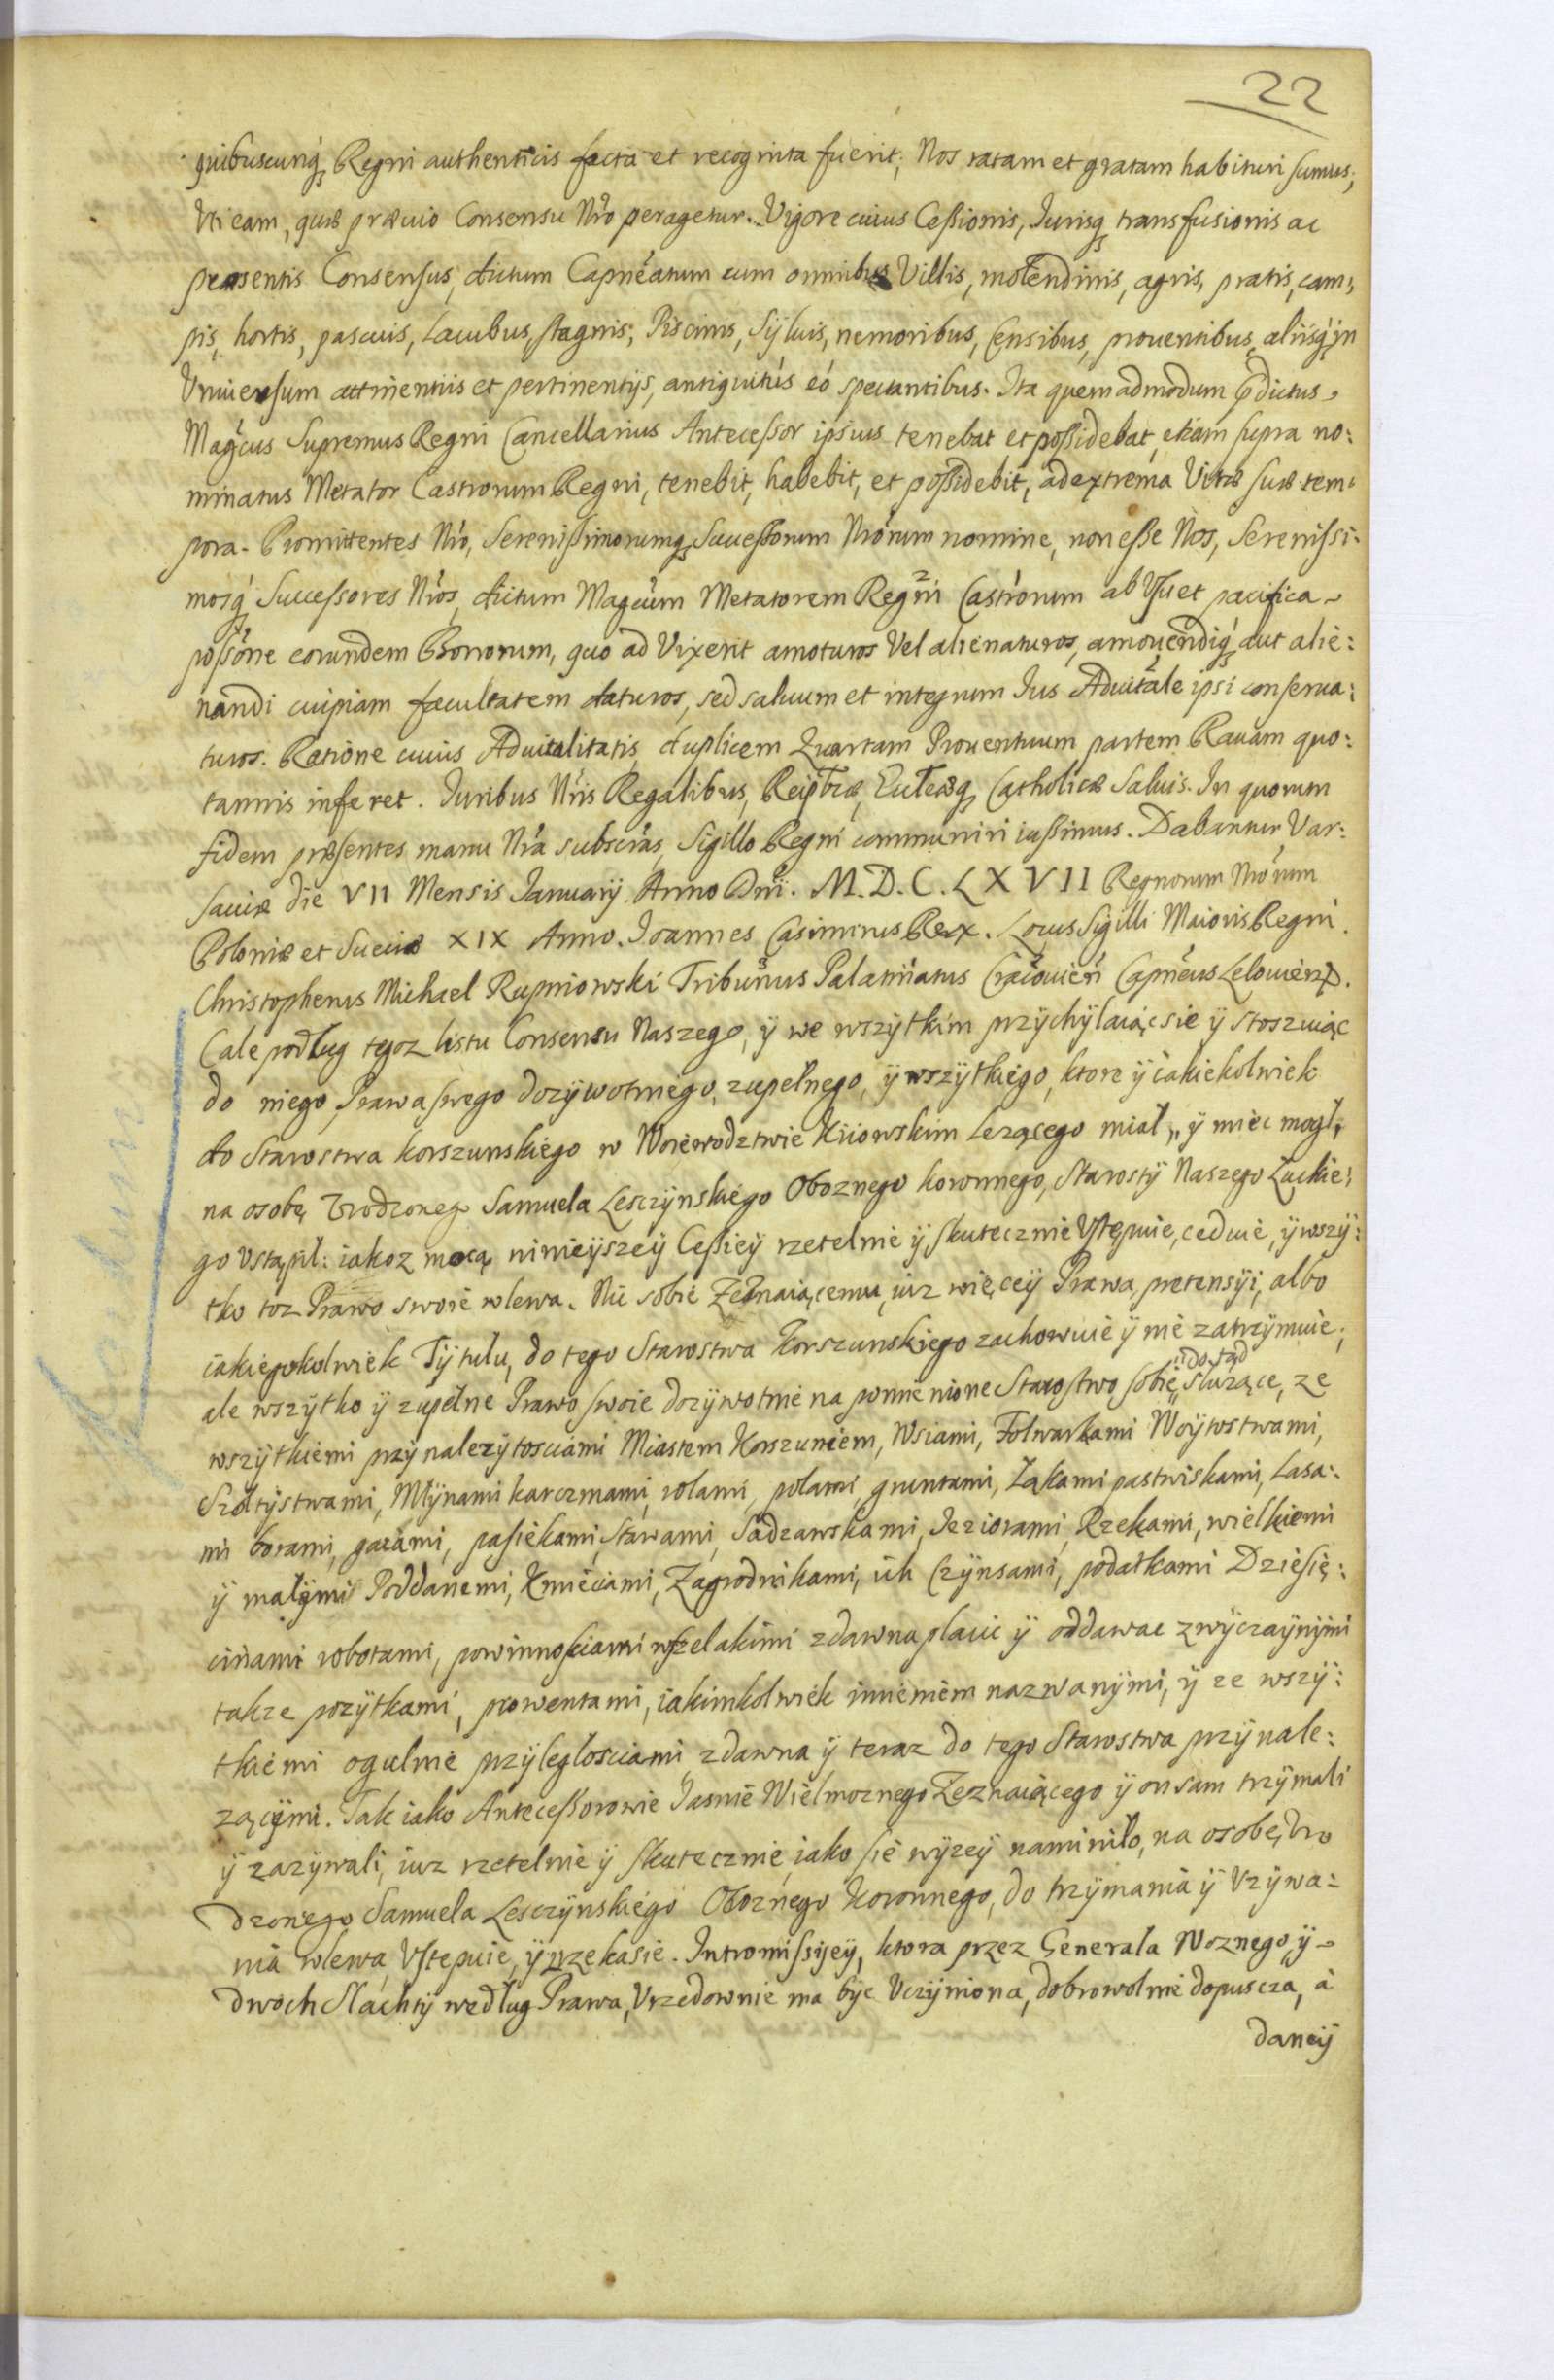 22
quibuscunq́ Regni authenticis facta et recognita fuerit; Nos ratam et gratam habituri sumus;
Vti eam, quæ præuio Consensu Nr̃o peragetur. Vigore cuius Cessionis, Jurisq transfusionis ac
præsentis Consensus, dictum Capnéatum cum omnibus Villis, molendinis, agris, pratis, cam:
pis, hortis, pascuis, Lacubus, stagnis, Piscinis, Syluis, nemoribus, Censibus, prouentibus, aliisq́ in
Vniuersum attinentiis et pertinentijs, antiquitùs eó spectantibus. Ita quemadmodum p̃dictus
Magćus Supremus Regni Cancellarius Antecessor ipsius tenebat et possidebat, etiam supra no:
minatus Metator Castrorum Regni, tenebit, habebit, et possidebit, ad extrema Vitæ suæ tem:
pora. Promittentes Nr̃o, Serenissimorumq Successorum Nrórum nomine, non esse Nos, Serenissi:
mosq́ Successores Nr̃os, dictum Magćum Metatorem Regni Castrorum ab Vsu et pacifica
possõne eorundem Bonorum, quo ad Vixerit amoturos Vel alienaturos, amouendiq́ aut alie:
nandi cuipiam facultatem daturos, sed saluum et integrum Jus Aduitale ipsi conserua:
turos. Ratione cuius Aduitalitatis, duplicem Quartam Prouentuum partem Rauam quo:
tannis inferet. Juribus Nr̃is Regalibus, Reiptæ, Eccleæq Catholicæ Saluis. In quorum
fidem præsentes manu Nr̃a subscr̃as, Sigillo Regni communiri iussimus. Dabantur Var:
sauiæ die VII Mensis January Anno Dñi. M.D.C.LXVII Regnorum Nrórum
Poloniæ et Sueciæ XIX Anno. Joannes Casimirus Rex. Locus Sigilli Maioris Regni.
Christophorus Michael Rupniowski Tribunus Palatinatus Cracouień Capnéus Lelouien̄.
Cale podług tegoz listu Consensu Naszego, ÿ we wszÿtkim przÿchÿlaiąc sie ÿ stoszuiąc
do niego, Prawa swego dozÿwotniego, zupełnego, ÿ wszÿtkiego, ktore ÿ iakiekolwiek
do Starostwa korszunskiego w Woiewodztwie Kiiowskim Lezącego miał, ÿ miec mogł,
na osobę Vrodzoneg Samuela Lesczÿnskiego Oboznego koronnego, Starostÿ Naszego Łuckie:
go Vstąpił: iakoz mocą ninieÿszeÿ Cessieÿ rzetelnie ÿ skutecznie Vstępuie, ceduie, ÿ wszÿ:
tko toz Prawo swoie wlewa. Nic sobie Zeznaiącemu, iuz więceÿ Prawa, pretensÿi, albo
iakiegokolwiek Tÿtulu, do tego Starostwa Korszunskiego zachowuie ÿ nie zatrzÿmuie;
ale wszÿtko ÿ zupełne Prawo swoie dozÿwotnie na pomienione Starostwo sobie dotąd słuzące, ze
wszÿtkiemi przÿnalezÿtosciami Miastem Korszuniem, Wsiami, Folwarkami Woÿtostwami,
Szołtÿstwami, Młÿnami karczmami, rolami, polami, gruntami, Łąkami pastwiskami, Lasa:
mi borami, gaiami, pasiekami, Stawami, Sadzawskami, Jeziorami, Rzekami, wielkiemi
ÿ małÿmi Poddanemi, Kmieciami, Zagrodnikami, ich Czÿnsami, podatkami Dziesię:
cinami robotami, powinnosciami wszelakimi zdawna płacic ÿ oddawac zwÿczaÿnÿmi
takze pozÿtkami, prowentami, iakimkolwiek imieniem nazwanÿmi, ÿ ze wszÿ:
tkiemi ogulnie przÿległosciami zdawna ÿ teraz do tego Starostwa przÿnale:
zącÿmi. Tak iako Antecessorowie Jasnie Wielmoznego Zeznaiącego ÿ on sam trzÿmali
ÿ zazÿwali, iuz rzetelnie ÿ skutecznie, iako sie wÿzeÿ namieniło, na osobę Vro
dzonego Samuela Lesczÿnskiego Oboznego Koronnego, do trzÿmania ÿ Vzÿwa:
nia wlewa, Vstepuie, ÿ zrzeka sie. Intromissÿeÿ, ktora przez Generała Woznego, ÿ
dwoch Slachtÿ według Prawa, Vrzedownie ma bÿc Vczÿniona, dobrowolnie dopuscza, à
daneÿ